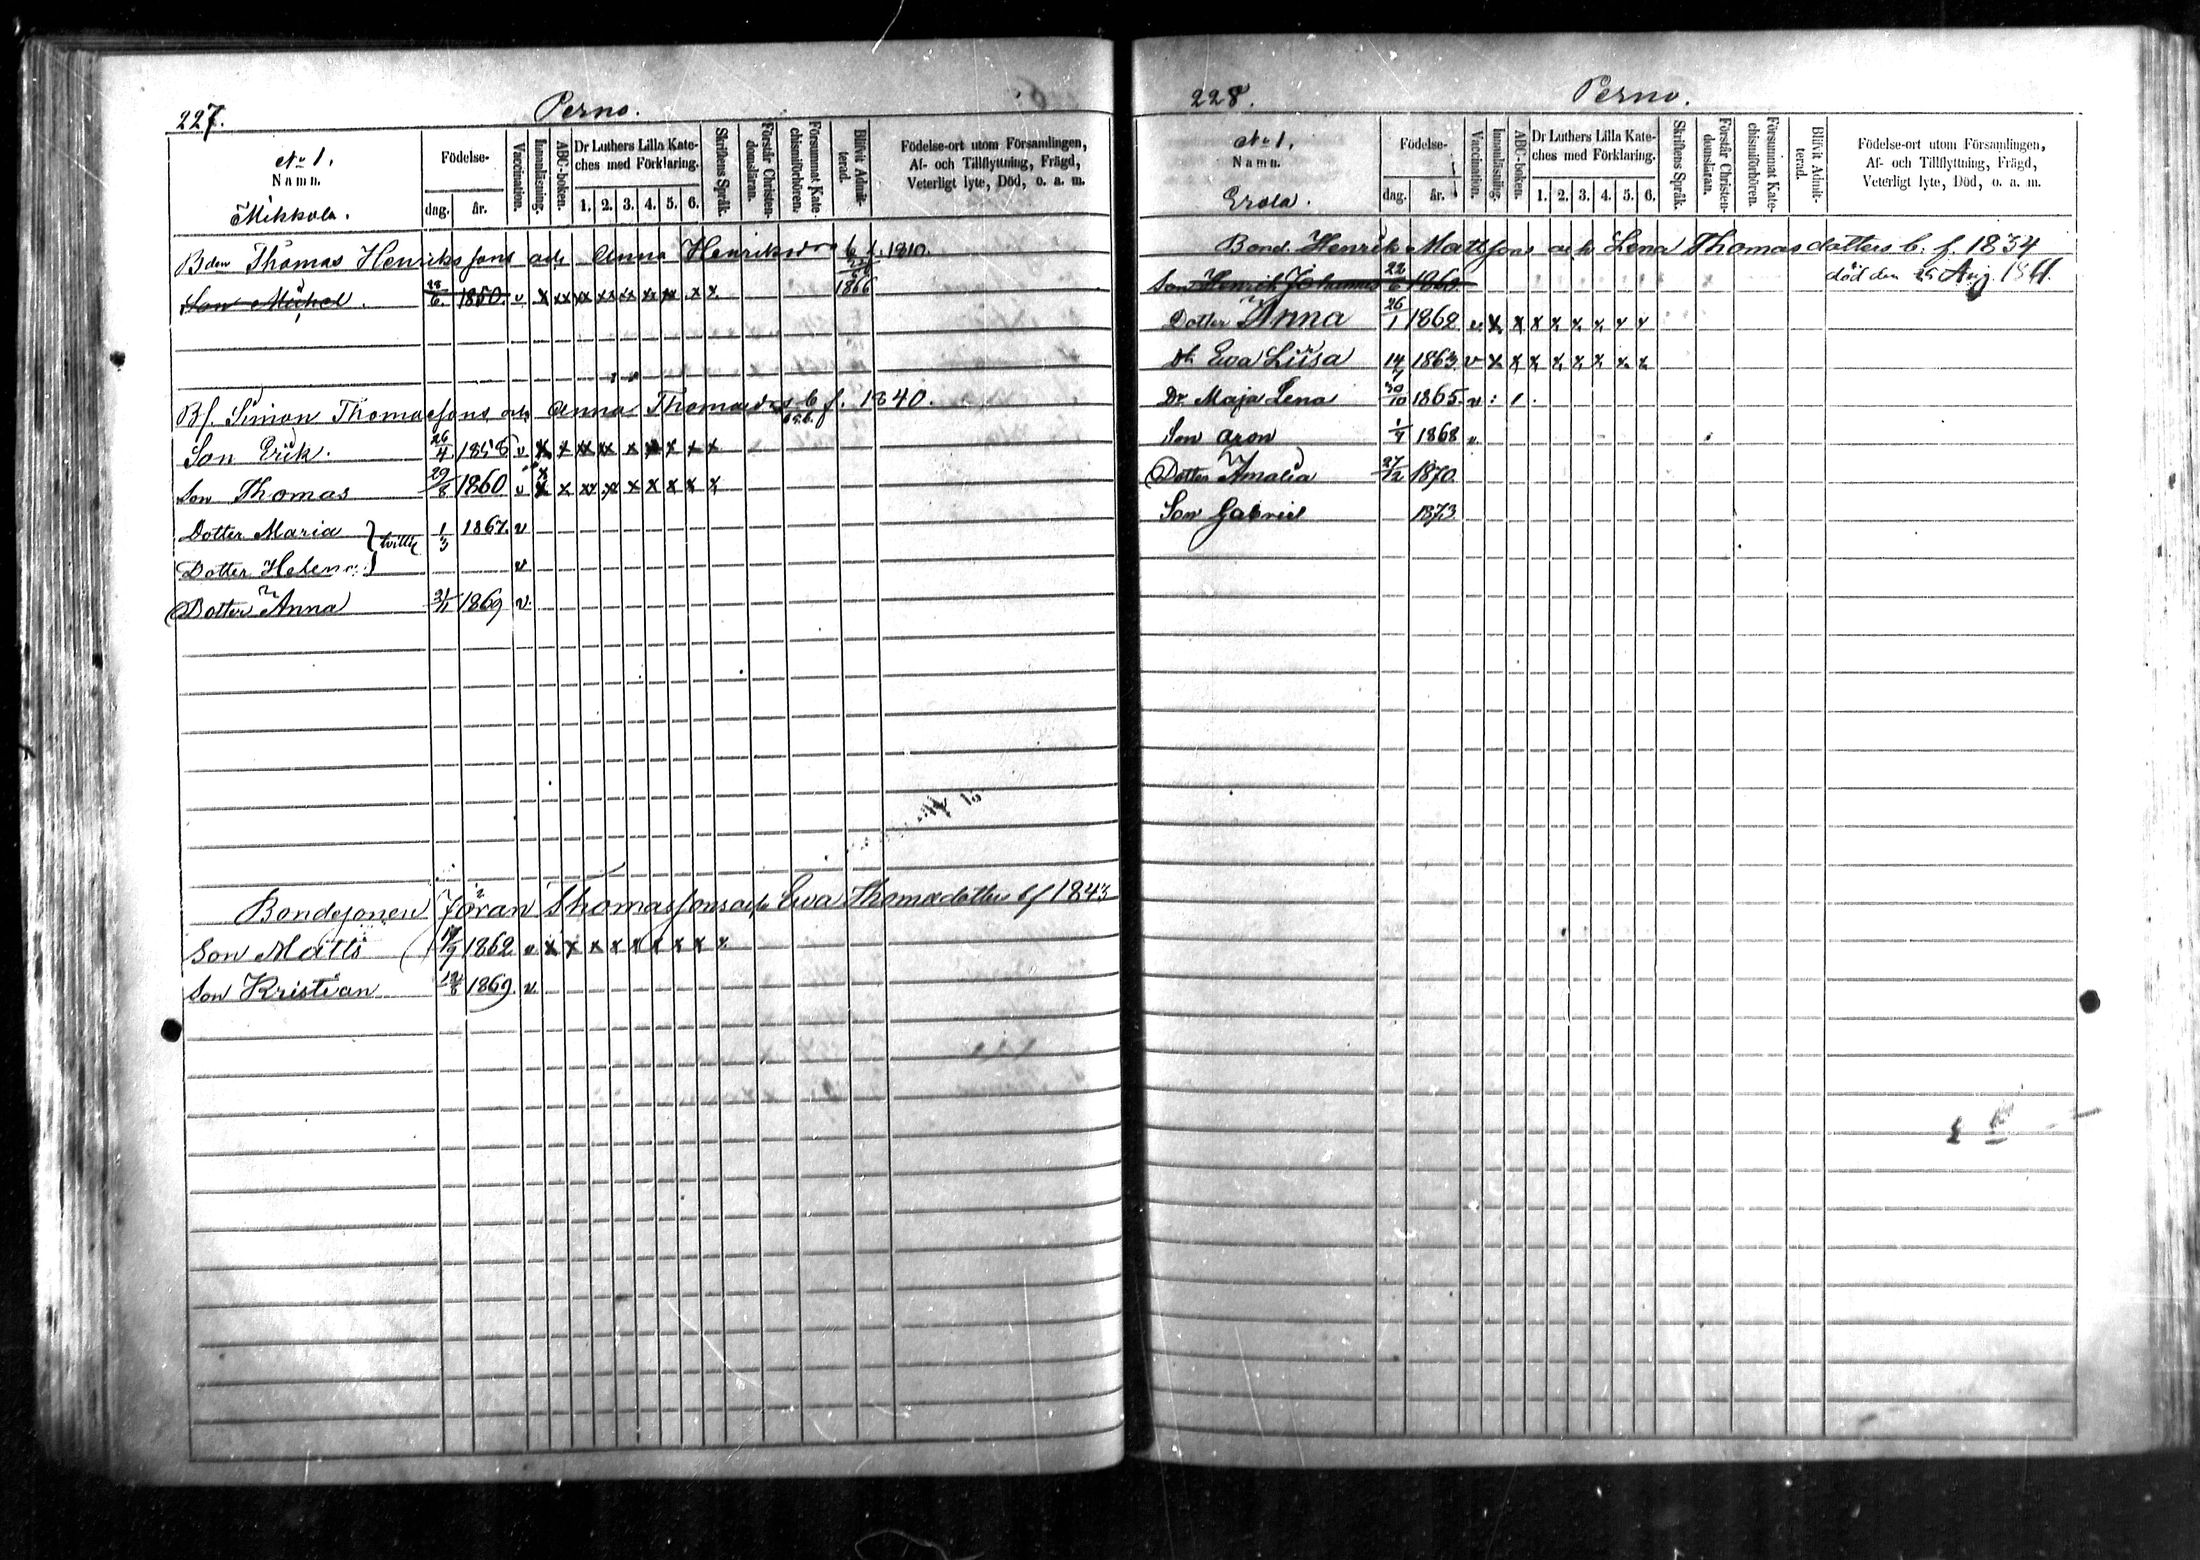 227.
Perno.
No 1.
Namn.
Mikkola.
Födelse-
dag.
år.
Vaccination.
Innanläsning.
ABC-boken.
Dr Luthers Lilla Kate-
ches med Förklaring.
1. 2. 3. 4. 5. 6.
Skriftens Språk.
Förstår Christen-
domsläran.
Försummat Kate-
chismiförhören.
Blifvit Admit-
terad.
Födelse-ort utom Församlingen,
Af- och Tillflyttning, Frägd,
Veterligt lyte, Död, o. a. m.
Bden Thomas Henrikssons och Anna Henriksdrs b. f. 1810.
Son Mickel. 28/6 1850. v x xx xx xx xx xx xx x x. 1866
Bf. Simon Thomassons och Anna Thomasdrs b. f. 1840.
Son Erik. 26/4 1858 v x x xx xx x x x x x
Son Thomas 29/8 1860 v x x xx x x x x x x
Dotter Maria 1/3 1867. v
Dotter Helena v
Dotter Anna 1869 v.
Bondesonen Jöran Thomassons och Eva Thomasdotters bf 1843
Son Matts 1862 v x x x x x x x x x
Son Kristian 1869. v.
228.
Perno.
No 1.
Namn.
Erola.
Födelse-
dag.
år.
Vaccination.
Innanläsning.
ABC-boken.
Dr Luthers Lilla Kate-
ches med Förklaring.
1. 2. 3. 4. 5. 6.
Skriftens Språk.
Förstår Christen-
domsläran.
Försummat Kate-
chismiförhören.
Blifvit Admit-
terad.
Födelse-ort utom Församlingen,
Af- och Tillflyttning, Frägd,
Veterligt lyte, Död, o. a. m.
Bond. Henrik Matssons och Lena Thomasdotters b. f. 1834
Son Henrik Johannes 22/6 1860. död den Aug.
Dotter Anna 26/1 1862 v x x x x x x x x
Dr Eva Liisa 14/7 1863 v x x x x x x x x
Dr Maja Lena 30/10 1865. v
Son Aron 1/7 1868 v
Dotter Amalia 27/12 1870.
Son Gabriel 1873